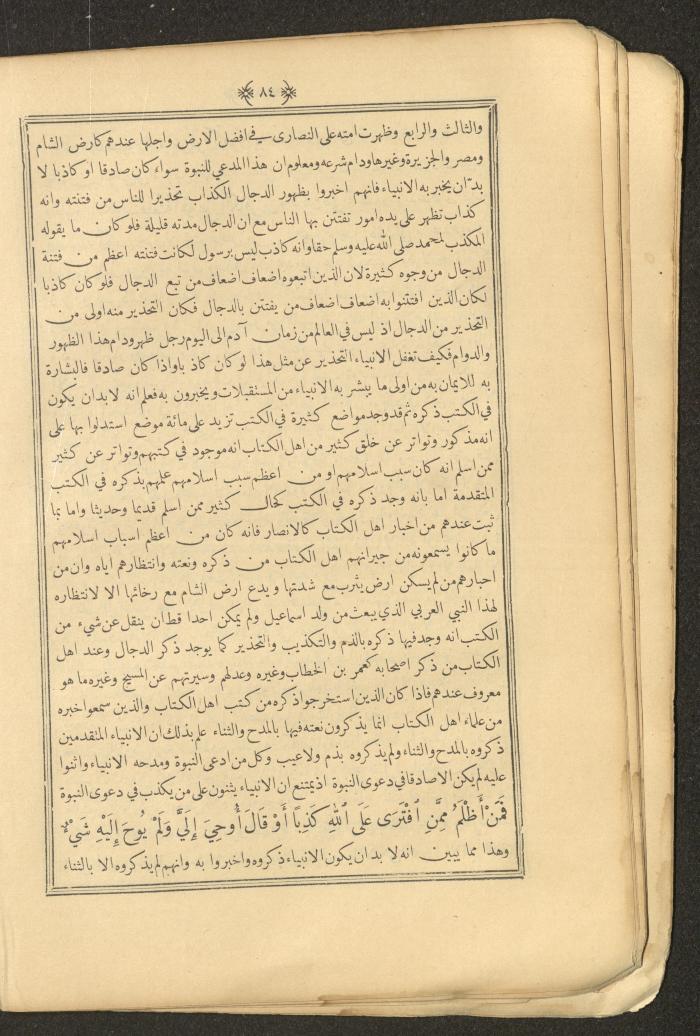 ٨٤
والثالث والرابع وظهرت امته على النصارى في افضل الارض واجلها عندهم كارض الشام
ومصر والجزيرة وغيرها ودام شرعه ومعلوم ان هذا المدعي للنبوة سواء كان صادقا او كاذبا لا
بدّ ان يخبر به الانبياء فانهم اخبروا بظهور الدجال الكذاب تحذيرا للناس من فتنته وانه
كذاب تظهر على يده امور تفتتن بها الناس مع ان الدجال مدته قليلة فلو كان ما يقوله
المكذب لمحمد صلى الله عليه وسلم حقا وانه كاذب ليس برسول لكانت فتنته اعظم من فتنة
الدجال من وجوه كثيرة لان الذين اتبعوه اضعاف اضعاف من تبع الدجال فلو كان كاذبا
لكان الذين افتتنوا به اضعاف اضعاف من يفتتن بالدجال فكان التحذير منه اولى من
التحذير من الدجال اذ ليس في العالم من زمان آدم الى اليوم رجل ظهر ودام هذا الظهور
والدوام فكيف تغفل الانبياء التحذير عن مثل هذا لو كان كاذبا واذا كان صادقا فالبشارة
به للايمان به من اولى ما يبشر به الانبياء من المستقبلات ويخبرون به فعلم انه لا بد ان يكون
في الكتب ذكره ثم قد وجد مواضع كثيرة في الكتب تزيد على مائة موضع استدلوا بها على
انه مذكور وتواتر عن خلق كثير من اهل الكتاب انه موجود في كتبهم وتواتر عن كثير
ممن اسلم انه كان سبب اسلامهم او من اعظم سبب اسلامهم علمهم بذكره في الكتب
المتقدمة اما بانه وجد ذكره في الكتب كحال كثير ممن اسلم قديما وحديثا واما بما
ثبت عندهم من اخبار اهل الكتاب كالانصار فانه كان من اعظم اسباب اسلامهم
ما كانوا يسمعونه من جيرانهم اهل الكتاب من ذكره ونعته وانتظارهم اياه وان من
احبارهم من لم يسكن ارض يثرب مع شدتها ويدع ارض الشام مع رخائها الا لانتظاره
لهذا النبي العربي الذي يبعث من ولد اسماعيل ولم يمكن احدا قط ان ينقل عن شيء من
الكتب انه وجد فيها ذكره بالذم والتكذيب والتحذير كما يوجد ذكر الدجال وعند اهل
الكتاب من ذكر اصحابه كعمر بن الخطاب وغيره وعدلهم وسيرتهم عن المسيح وغيره ما هو
معروف عندهم فاذا كان الذين استخرجوا ذكره من كتب اهل الكتاب والذين سمعوا خبره
من علماء اهل الكتاب انما يذكرون نعته فيها بالمدح والثناء علم بذلك ان الانبياء المتقدمين
ذكروه بالمدح والثناء ولم يذكروه بذم ولا عيب وكل من ادعى النبوة ومدحه الانبياء واثنوا
عليه لم يكن الا صادقا في دعوى النبوة اذ يمتنع ان الانبياء يثنون على من يكذب في دعوى النبوة
فَمَنْ أَظْلَمُ مِمَّنِ افْتَرَى عَلَى ٱللهِ كَذِبًا أَوْ قَالَ أُوحِيَ إِلَيَّ وَلَمْ يُوحَ إِلَيْهِ شَيْءٌ
وهذا مما يبين انه لا بد ان يكون الانبياء ذكروه واخبروا به وانهم لم يذكروه الا بالثناء